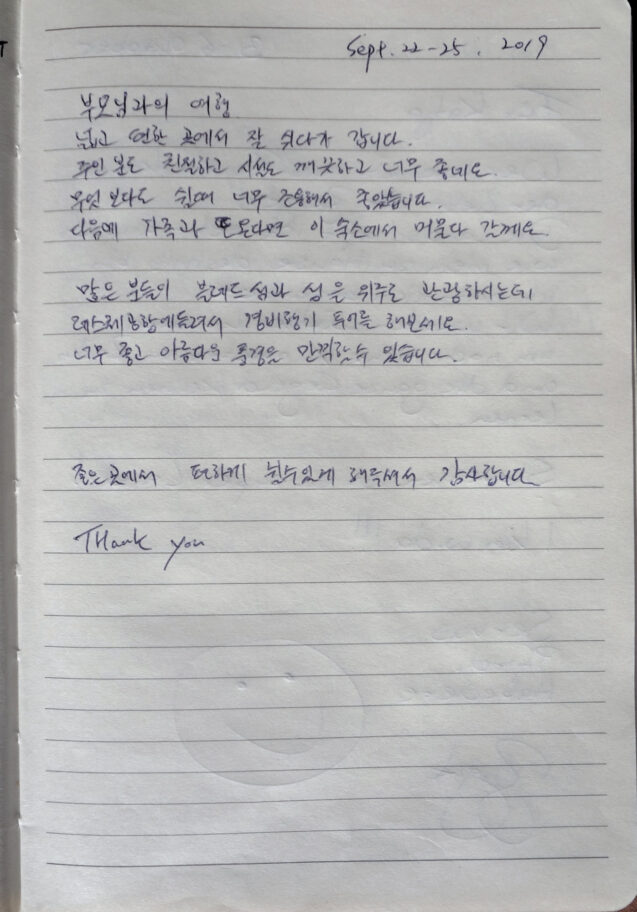 Sept. 22-25. 2019
부모님과의 여행
넓고 편한 곳에서 잘 쉬다가 갑니다.
주인 분도 친절하고 시설도 깨끗하고 너무 좋네요.
무엇 보다도 쉴때 너무 조용해서 좋았습니다.
다음에 가족과 또 온다면 이 숙소에서 머물다 갈께요.
많은 분들이 블레드 섬과 성을 위주로 관광하시는데
레스체공항에 들려서 경비행기 투어를 해보세요.
너무 좋고 아름다운 풍경을 만끽할 수 있습니다.
좋은 곳에서 편하게 쉴수있게 해주셔서 감사합니다
Thank you